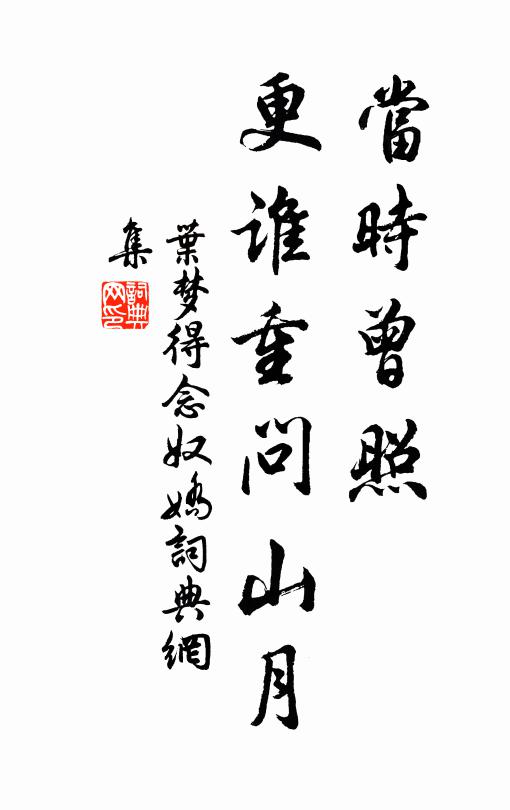 當時曾照
更誰重問山月
葉梦得念奴嬌詞典網
集
詞典
网印